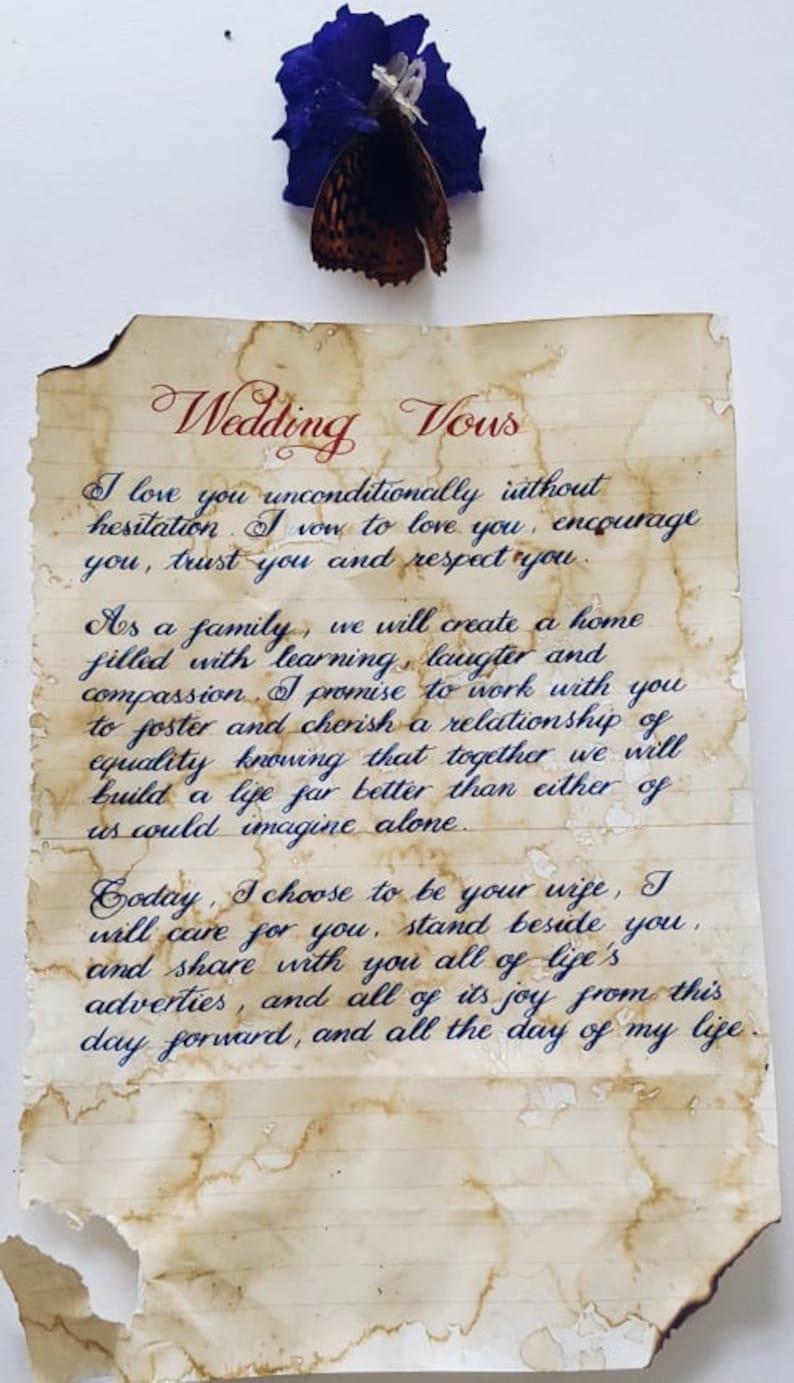 Wedding Vows
I love you unconditionally without
hesitation. I vow to love you, encourage
you, trust you and respect you.
As a family, we will create a home
filled with learning, laugter and
compassion. I promise to work with you
to foster and cherish a relationship of
equality knowing that together we will
build a life far better than either of
us could imagine alone.
Today, I choose to be your wife, I
will care for you, stand beside you,
and share with you all of life's
adverties, and all of its joy from this
day forward, and all the day of my life.